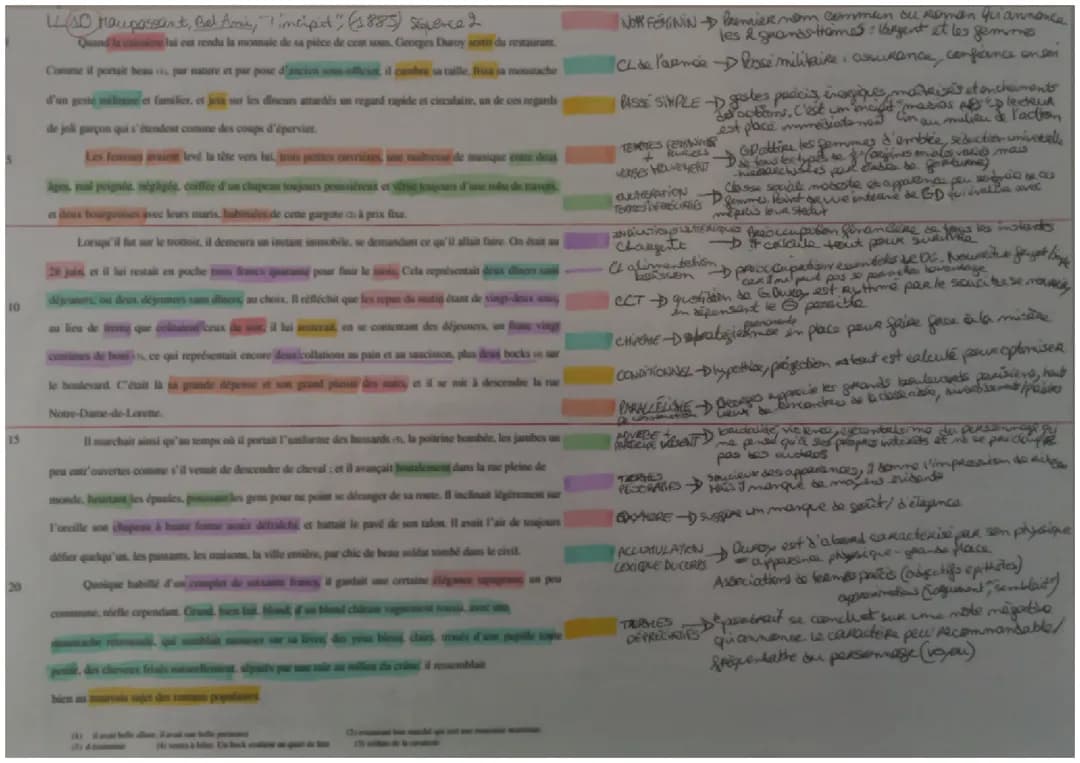 Maupassant, Bel Ami, "l'incipit", (1885) Séquence 2
Quand la caissière lui eut rendu la monnaie de sa pièce de cent sous, Georges Duroy sortit du restaurant.
Comme il portait beau (1), par nature et par pose d'ancien sous-officier, il cambra sa taille, frisa sa moustache
d'un geste militaire et familier, et jeta sur les dîneurs attardés un regard rapide et circulaire, un de ces regards
de joli garçon qui s'étendent comme des coups d'épervier.
5
Les femmes avaient levé la tête vers lui, trois petites ouvrières, une maîtresse de musique entre deux
âges, mal peignée, négligée, coiffée d'un chapeau toujours poussiéreux et vêtue toujours d'une robe de travers,
et deux bourgeoises avec leurs maris, habituées de cette gargote (2) à prix fixe.
Lorsqu'il fut sur le trottoir, il demeura un instant immobile, se demandant ce qu'il allait faire. On était au
28 juin, et il lui restait en poche trois francs quarante pour finir le mois. Cela représentait deux dîners sans
10
déjeuners, ou deux déjeuners sans dîners, au choix. Il réfléchit que les repas du matin étant de vingt-deux sous,
au lieu de trente que coûtaient ceux du soir, il lui resterait, en se contentant des déjeuners, un franc vingt
centimes de boni (3), ce qui représentait encore deux collations au pain et au saucisson, plus deux bocks (4) sur
le boulevard. C'était là sa grande dépense et son grand plaisir des nuits, et il se mit à descendre la rue
Notre-Dame-de-Lorette.
15
Il marchait ainsi qu'au temps où il portait l'uniforme des hussards (5), la poitrine bombée, les jambes un
peu entr'ouvertes comme s'il venait de descendre de cheval ; et il avançait brutalement dans la rue pleine de
monde, heurtant les épaules, poussant les gens pour ne point se déranger de sa route. Il inclinait légèrement sur
l'oreille son chapeau à haute forme assez défraîchi, et battait le pavé de son talon. Il avait l'air de toujours
défier quelqu'un, les passants, les maisons, la ville entière, par chic de beau soldat tombé dans le civil.
20
Quoique habillé d'un complet de soixante francs, il gardait une certaine élégance tapageuse, un peu
commune, réelle cependant. Grand, bien fait, blond, d'un blond châtain vaguement roussi, avec une
moustache retroussée, qui semblait mousser sur sa lèvre, des yeux bleus, clairs, troués d'une pupille toute
petite, des cheveux frisés naturellement, séparés par une raie au milieu du crâne, il ressemblait
bien au mauvais sujet des romans populaires.
(3) d'économie
(4) verres à bière. Un bock contient un quart de litre
(5) soldats de la cavalerie
NOM FÉMININ → Premier nom commun du roman qui annonce
les 2 grands thèmes : l'argent et les femmes
CL de l'armée → Pose militaire : assurance, confiance en soi
PASSÉ SIMPLE → gestes précis, énergiques, maîtrisés et enchaînements
des actions. C'est un incipit "medias res" → lecteur
est placé immédiatement au milieu de l'action
TERMES FÉMININS
VERBES MOUVEMENT
→ GD attire les femmes d'emblée, séduction universelle
ÉNUMÉRATION
TERMES DÉPRÉCIATIFS
→ Classe sociale modeste et apparence peu soignée de ces
femmes. Point de vue interne de GD qui évalue avec
mépris leur statut
→ Préoccupation financière de tous les instants
Il calcule tout pour survivre
CL alimentation, boisson
→ préoccupation essentielle de
CCT → quotidien de G Duroy est rythmé par le souci de se nourrir,
en dépensant le ⊖ possible
CHIASME → stratégie mise en place pour faire face à la misère
CONDITIONNEL → hypothèse, projection → tout est calculé pour optimiser
PARALLÉLISME de construction → Georges apprécie les grands boulevards parisiens, haut
lieux de rencontres de la classe aisée,
ADVERBE +
PARTICIPE PRÉSENT
→ brutalité,
ne pense qu'à ses propres intérêts et ne se préoccupe
pas des autres
TERMES
PÉJORATIFS
→ soucieux des apparences, il donne l'impression de
Mais il manque de moyens évidents
→ suggère un manque de goût / d'élégance
ACCUMULATION
LEXIQUE DU CORPS
→ Duroy est d'abord caractérisé par son physique
= apparence physique - grande place
Associations de termes précis (adjectifs épithètes)
approximations ("vaguement", "semblait")
TERMES
DÉPRÉCIATIFS
→ portrait se conclut sur une note négative
qui annonce le caractère peu recommandable /
fréquentable du personnage (voyou)